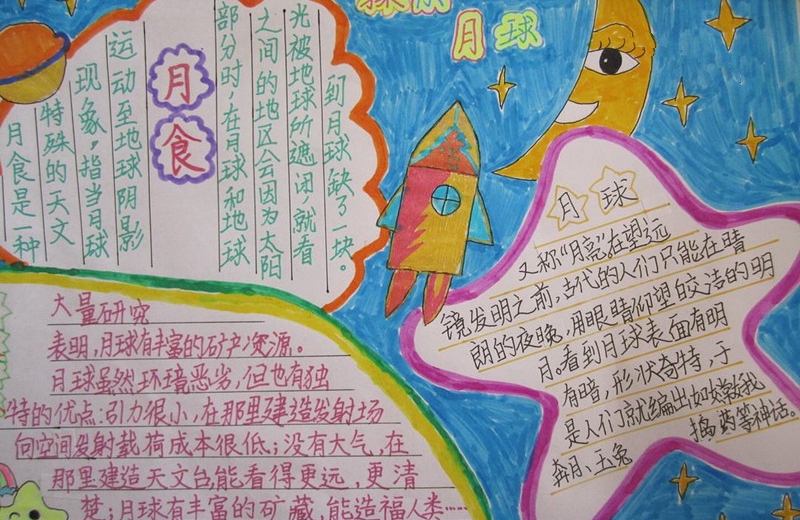 月球
月食
月食是一种
特殊的天文
现象，指当月球
运动至地球阴影
部分时，在月球和地球
之间的地区会因为太阳
光被地球所遮闭，就看
到月球缺了一块。
月球
又称“月亮”在望远
镜发明之前，古代的人们只能在晴
朗的夜晚，用眼睛仰望皎洁的明
月。看到月球表面有明
有暗，形状奇特，于
是人们就编出如嫦娥
奔月、玉兔捣药等神话。
大量研究
表明，月球有丰富的矿产资源。
月球虽然环境恶劣，但也有独
特的优点：引力很小，在那里建造发射场
向空间发射载荷成本很低；没有大气，在
那里建造天文台，能看得更远，更清
楚；月球有丰富的矿藏，能造福人类……